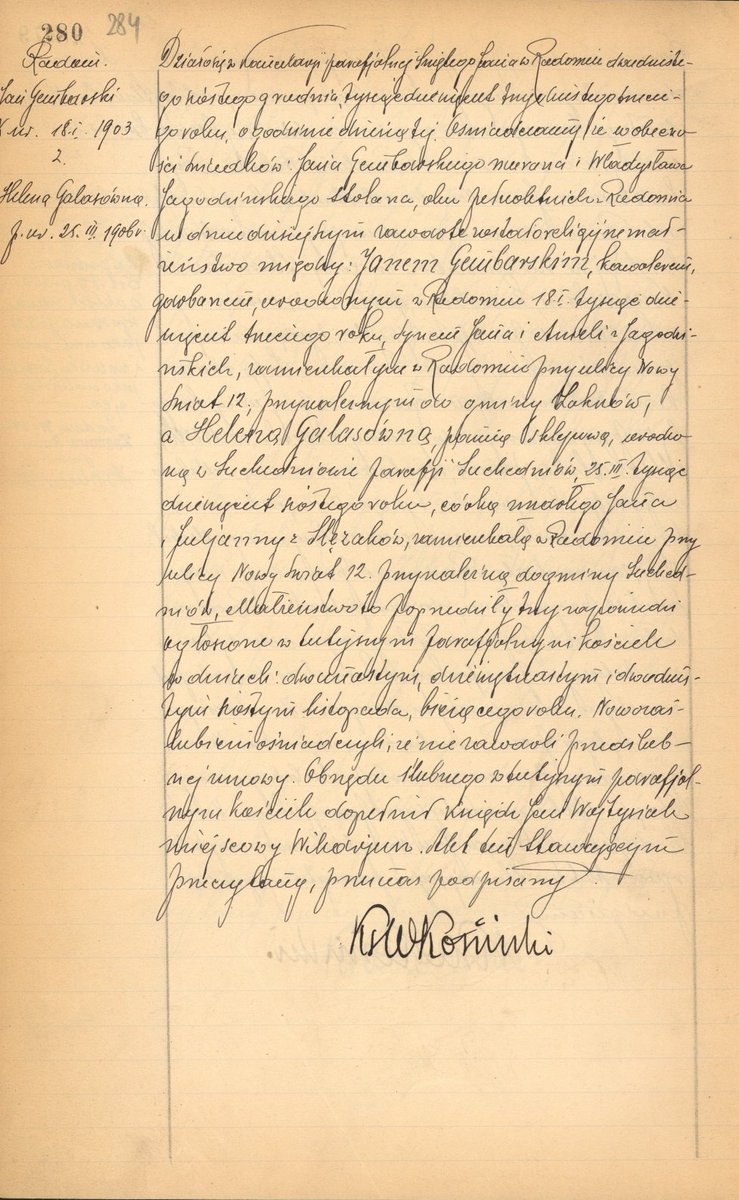 280 284
Radom.
Jan Gembarski
k. ur. 18.I. 1903
z.
Heleną Galasówną
p. ur. 25. III. 1906 r.
Działo się w Kancelarji parafjalnej Świętego Jana w Radomiu dwudziste-
go szóstego grudnia tysiąc dziewięćset trzydziestego trzeci-
go roku, o godzinie dziewiątej. Oświadczamy, że w obecno-
ści świadków: Jana Gembarskiego murarza i Władysława
Jagodzińskiego stolarza, obu pełnoletnich z Radomia
w dniu dzisiejszym zawarte zostało religijne mał-
żeństwo między: Janem Gembarskim, kawalerem,
garbarzem, urodzonym w Radomiu 18.I. tysiąc dzie-
więćset trzeciego roku, synem Jana i Anieli z Jagodzi-
ńskich, zamieszkałym w Radomiu przy ulicy Nowy
Świat 12, przynależnym do gminy
a Heleną Galasówną, panną sklepową, urodzo-
ną w Suchedniowie parafji Suchedniów, 25. III. tysiąc
dziewięćset szóstego roku, córką zmarłego Jana
i Juljanny z Ślęzaków, zamieszkałą w Radomiu przy
ulicy Nowy Świat 12. przynależną do gminy Suched-
niów. Małżeństwo to poprzedziły trzy zapowiedzi
ogłoszone w tutejszym parafjalnym kościele
w dniach: dwunastym, dziewiętnastym i dwudzies-
tym szóstym listopada, bieżącego roku. Nowozaś-
lubieni oświadczyli, że nie zawarli przedślub-
nej umowy. Obrzędu ślubnego w tutejszym parafjal-
nym kościele dopełnił ksiądz Jan Wojtysiak
miejscowy Wikarjusz. Akt ten stawającym
przeczytany, przez nas podpisany.
Ks W Kosiński